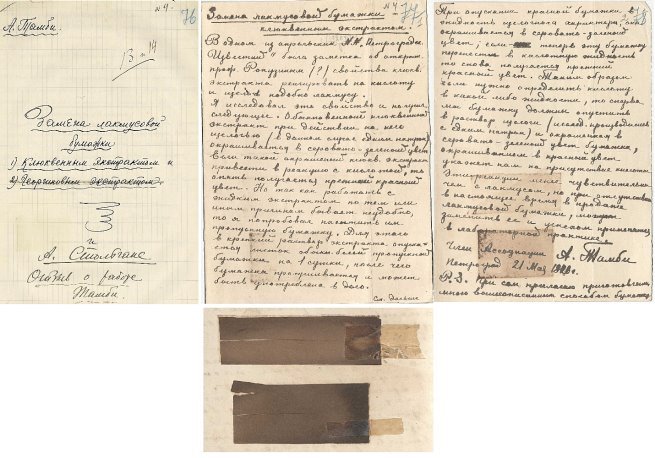 №4.
76
А. Тамби.
13 - 14
Замена лакмусовой
бумажки
1) Клюквенным экстрактом и
2) Георгиновым экстрактом.
и
А. Стольгане
Отзыв о работе
Тамби.
Замена лакмусовой бумажки
№4
77
клюквенным экстрактом.
В одном из апрельских №№ Петроградск.
была заметка об открыт.
проф. Ракузиным (?) свойства клюкв.
экстракта реагировать на кислоту
и щелочь подобно лакмусу.
Я исследовал это свойство и получил
следующее. Обыкновенный клюквенный
экстракт при действии на него
щелочью (в данном случае едким натром)
окрашивается в серовато-зеленый цвет
Если такой окрашенный клюкв. экстракт
привести в реакцию с кислотой, то
опять получается прежний красный
цвет. Но так как работать с
жидким экстрактом по тем или
иным причинам бывает неудобно,
то я попробовал насытить им
пропускную бумажку. Для этого
в крепкий раствор экстракта опуска-
ют листок обыкн. белой пропускной
бумажки на 1 сутки, после чего
бумажка просушивается и может
быть употреблена в дело.
См. дальше
78
При опускании красной бумажки в
жидкость щелочного характера, она
окрашивается в серовато-зеленый
цвет, если теперь эту бумажку
перенести в кислотную жидкость
то снова получается прежний
красный цвет. Таким образом
если нужно определить кислоту
в какой либо жидкости, то сперва
мы бумажку должны опустить
в раствор щелочи (исслед. производились
с едким натром) и окрашенная в
серовато-зеленый цвет бумажка,
окрашиванием в красный цвет
укажет нам на присутствие кислоты.
Эта реакция менее чувствительна
чем с лакмусом, но при отсутствии
в настоящее время в продаже
лакмусовой бумажки, может
заменить ее и с успехом применяться
в лабораторной практике.
Член Ассоциации
А. Тамби
Петроград 21 Мая 1920 г.
P.S. При сем прилагаю приготовленную
мною вышеописанным способом бумажку.